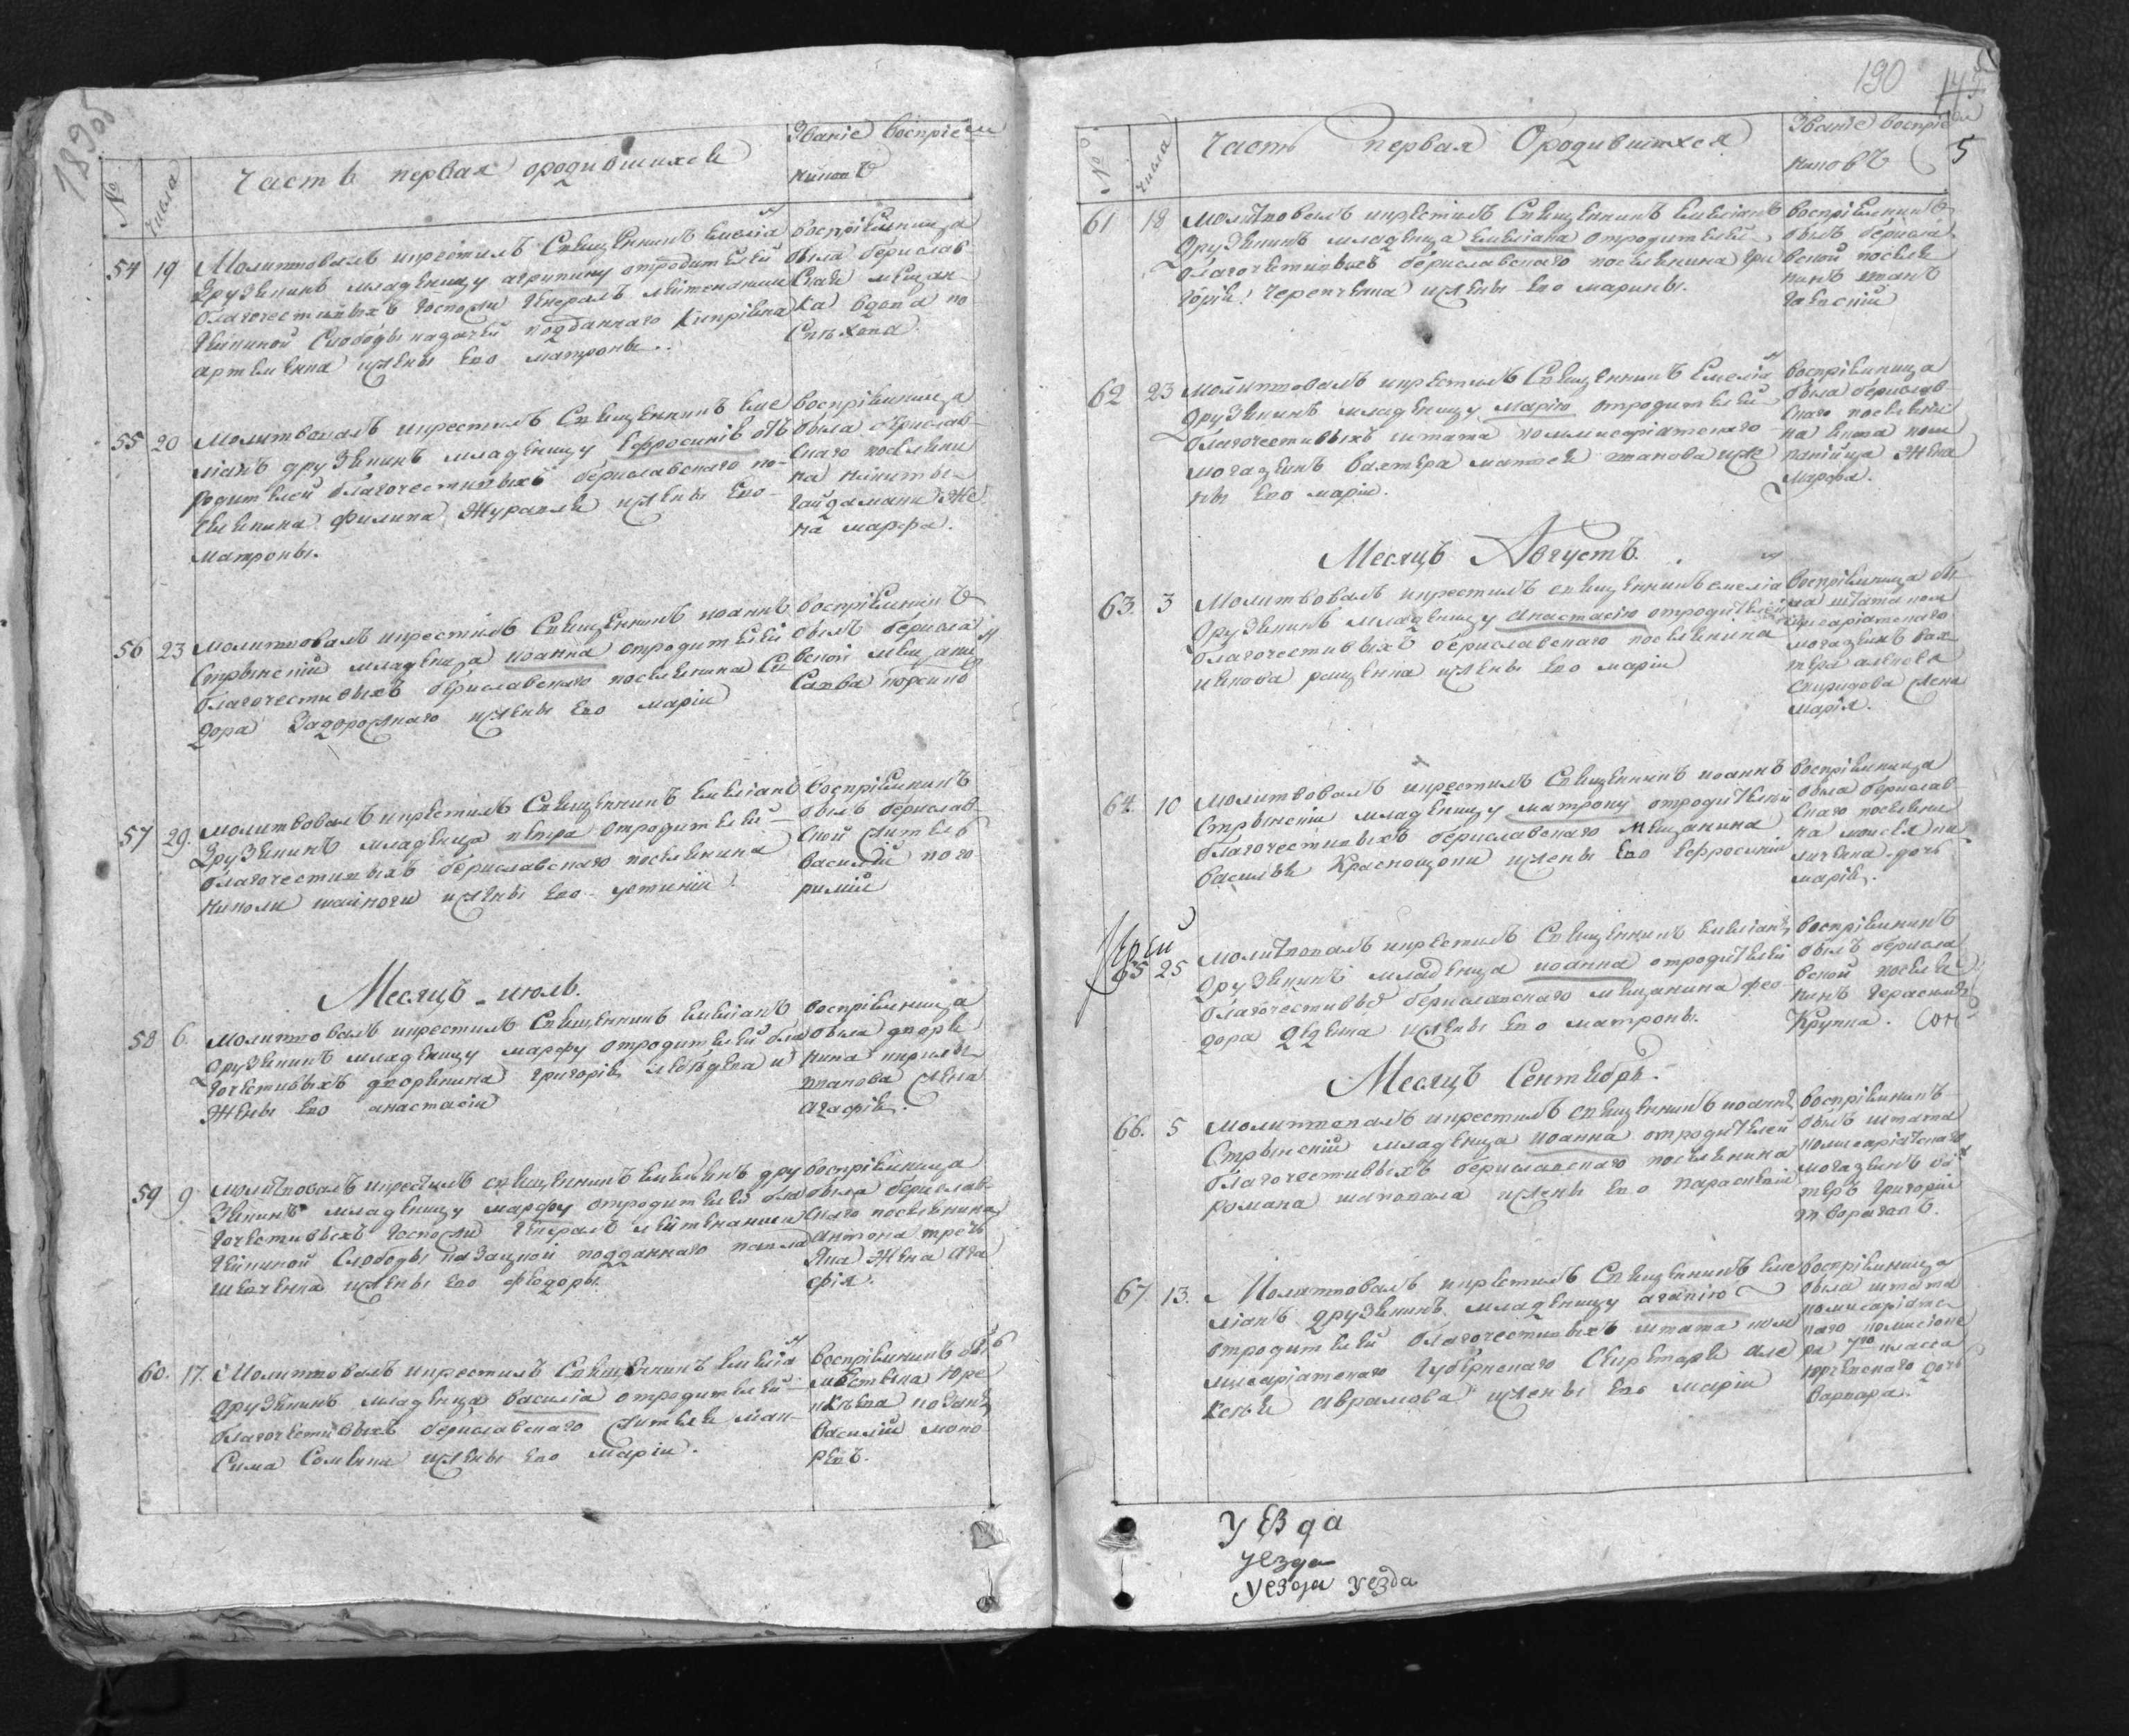 189об
№
числа
Часть первая ородившихся
Званіе воспріем
никовъ
54 19 Молитвовалъ икрестилъ Священникъ Емеліан
Друзенинъ младеницу агрипину отродителей
благочестивыхъ Госпожи Генералъ лейтенанши
слободы подданнаго Кипріяна
артеменка ижены его матроны.
воспріемница
была берислав
ская мещан
ка вдова
55 20 Молитвовалъ икрестилъ Священникъ Еме
ліанъ друзенинъ младеницу Ефросинію отъ
родителей благочестивыхъ бериславскаго по
селенина Филипа Журавля ижены его
матроны.
воспріемница
была берислав
скаго поселени
на никиты
гайдамаки же
на марфа.
56 23 Молитвовалъ икрестилъ Священникъ иоаннъ
Стрѣнскій младенца иоанна отродителей
благочестивыхъ бериславскаго поселенина Си
дора Задорожнаго ижены его маріи
воспріемникъ
былъ берисла
вской мещанин
Савва
57 29. молитвовалъ икрестилъ Священникъ Емеліанъ
Друзенинъ младенца петра отродителей
благочестивыхъ бериславскаго поселенина
николи ижены его устиніи
воспріемникъ
былъ берислав
ской житель
василій
Месяцъ июль.
58 6. Молитвовалъ икрестилъ Священникъ Емеліанъ
друзенинъ младеницу марфу отродителей бла
гочестивыхъ дворенина григорія лебѣдева и
жены его анастасіи
воспріемница
была дворе
нина кирилы
жена
агафія.
59 9 молитвовалъ икрестилъ священникъ Емеліанъ дру
зенинъ младеницу марфу отродителей бла
гочестивыхъ Госпожи Генералъ лейтенанши
слободы подданнаго павла
шевченка ижены его феодоры
воспріемница
была берислав
скаго поселенина
антона
жена ага
фія.
60. 17. Молитвовалъ икрестилъ Священникъ Емеліан
друзенинъ младенца василія отродителей
благочестивыхъ бериславскаго жителя мак
сима ижены его маріи.
воспріемникъ
василій
190
5
№
числа
Часть первая Ородившихся
Званіе воспріем
никовъ
61 18 Молитвовалъ икрестилъ Священникъ Емеліанъ
Друзенинъ младенца Емеліана отродителей
благочестивыхъ бериславскаго поселенина гри
горія Черепченка ижены его марины.
воспріемникъ
былъ берисла
вской поселе
нинъ
62 23 Молитвовалъ икрестилъ Священникъ Емеліан
друзенинъ младеницу марію отродителей
благочестивыхъ штата комисаріатскаго
могазеинъ вахтера матвея ижe
ны его маріи.
воспріемница
была берислав
скаго поселени
на
жена
марфа.
Месяцъ Августъ.
63. 3 Молитвовалъ икрестилъ священникъ емеліан
друзенинъ младеницу Анастасію отродителей
благочестивыхъ бериславскаго поселенина
ижены его маріи
воспріемница бы
ла штата ком
исаріатскаго
могазеинъ вах
тера алексея
Спиридова жена
марія.
64. 10 Молитвовалъ икрестилъ Священникъ иоаннъ
Стрѣнскій младеницу матрону отродителей
благочестивыхъ бериславскаго мещанина
Василія Краснощоки ижены его Ефросиніи
воспріемница
была берислав
скаго поселени
на моисея па
личена дочь
марія.
65 25 молитвовалъ икрестилъ Священникъ Емеліанъ
друзенинъ младенца иоанна отродителей
благочестивыхъ бериславскаго мещанина фео
дора дзена ижены его матроны.
воспріемникъ
былъ берисла
вской поселе
нинъ герасимъ
Крупка.
Месяцъ Сентябрь.
66. 5 Молитвовалъ икрестилъ священникъ иоаннъ
Стрѣнскій младенца иоанна отродителей
благочестивыхъ бериславскаго поселенина
романа шаповала ижены его параскевіи
воспріемникъ
былъ штата
комисаріатскаго
могазеинъ вах
теръ григорій
67. 13. Молитвовалъ икрестилъ Священникъ Еме
ліанъ друзенинъ младеницу агапію
отродителей благочестивыхъ штата ком
мисаріатскаго губернскаго Секретаря Але
ксѣя Аврамова ижены его маріи
воспріемница
была штата
комисаріатс
каго комисіоне
ра 7го класса
дочь
варвара.
уезда
уезда
уезда уезда